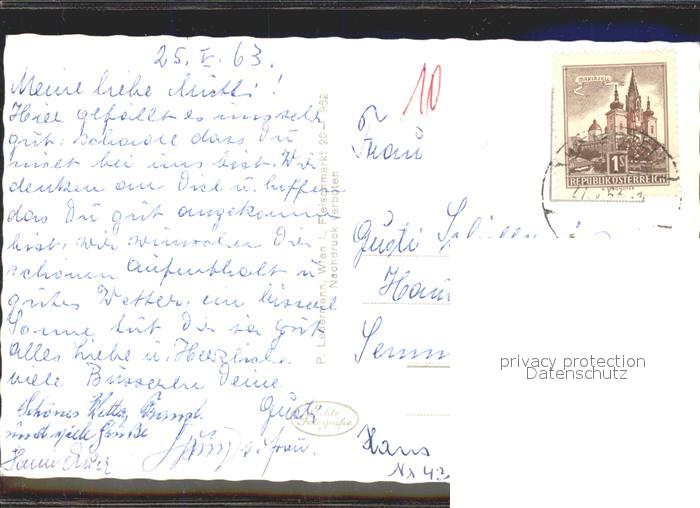 25. V. 63.
Meine liebe Mutti!
Hier gefällt es uns sehr
gut, schade dass Du
nicht bei uns bist. Wir
denken an Dich u. hoffen
das Du gut angekommen
bist, wir wünschen Dir
schönen Aufenthalt u.
gutes Wetter, ein bisserl
Sonne tut Dir so gut
alles Liebe u. Herzliche
viele Busserln Deine
Gusti
Schönes Wetter
und viele Grüße
P. Ledermann, Wien I, Fleischmarkt 20
Nachdruck verboten
Echte
Fotografie
10
MARIAZELL
1 S
REPUBLIK ÖSTERREICH
Frau
Gusti
Haus
Nr 43
privacy protection
Datenschutz